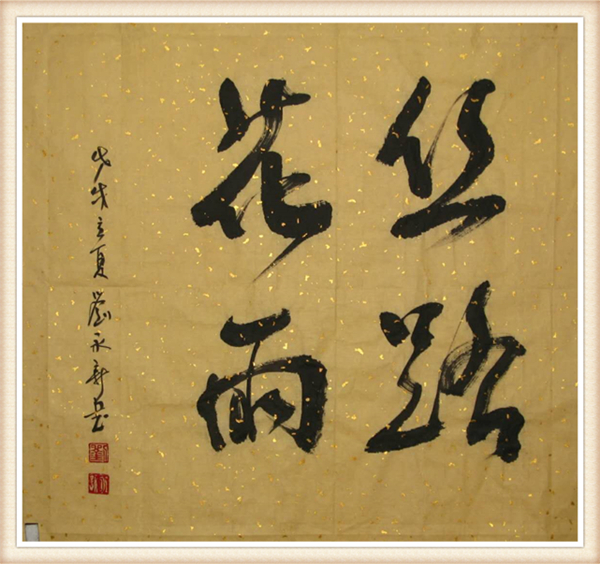 丝路
花雨
戊戌立夏刘永新书